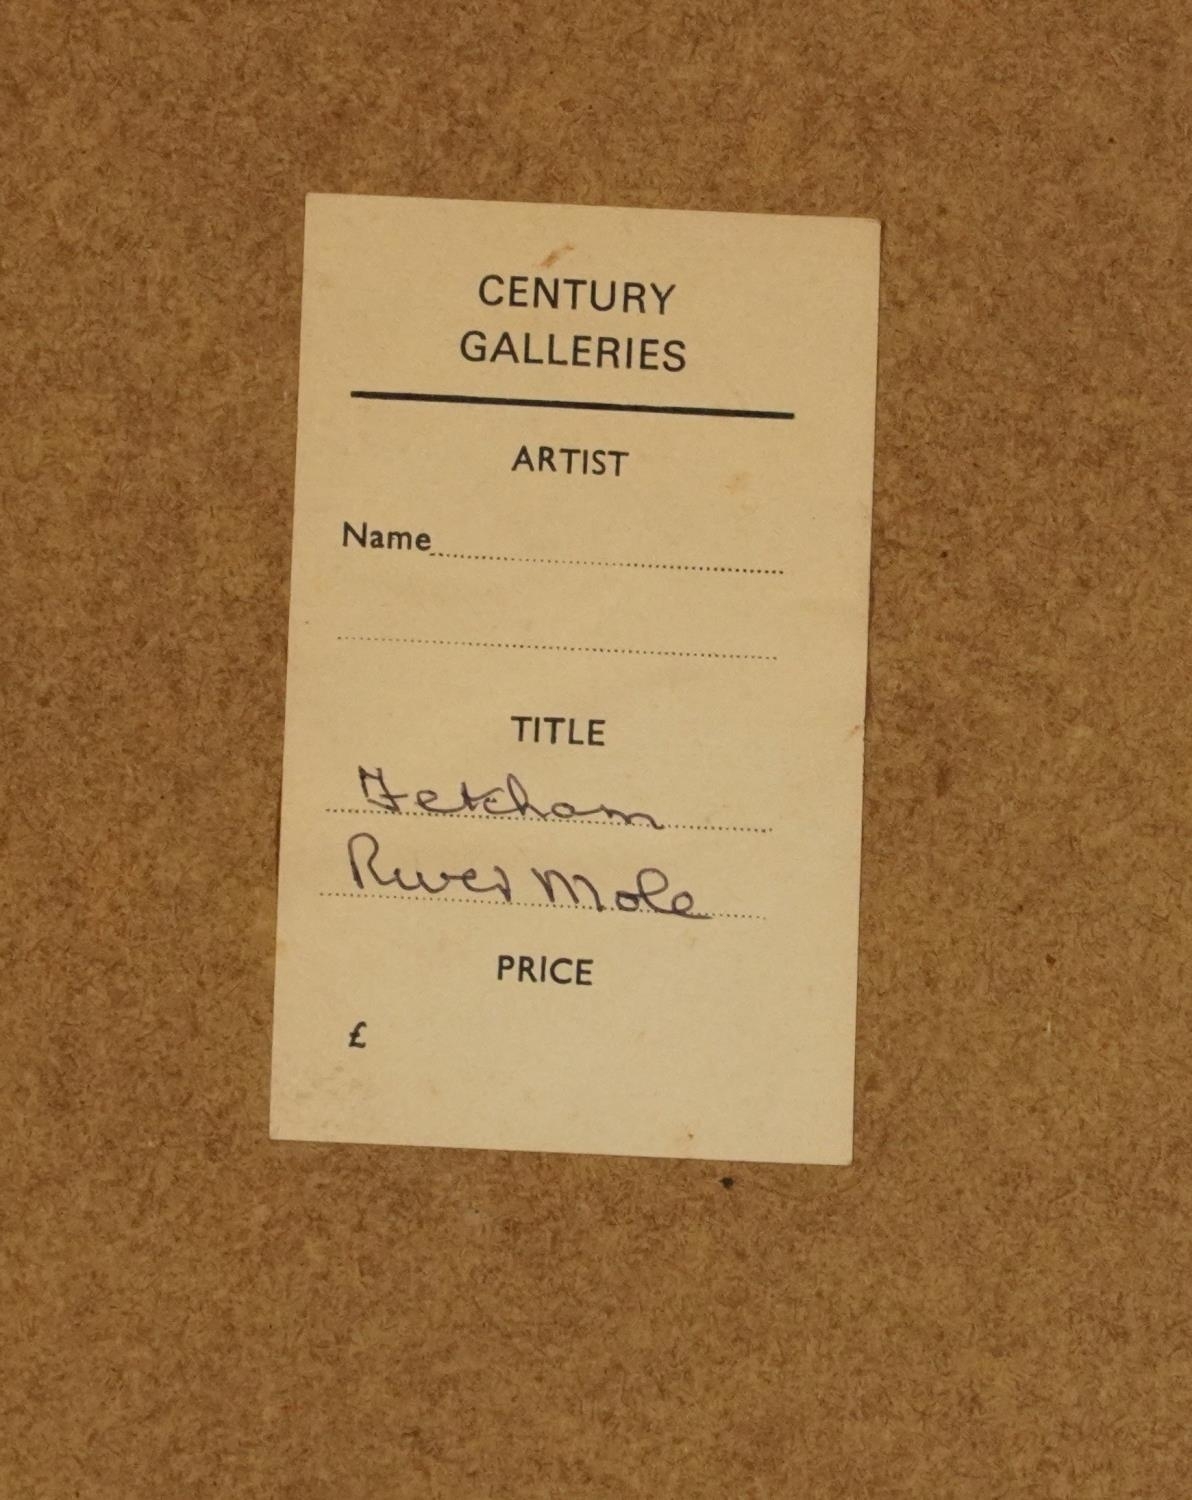 CENTURY
GALLERIES
ARTIST
Name
TITLE
Fetcham
River Mole
PRICE
£